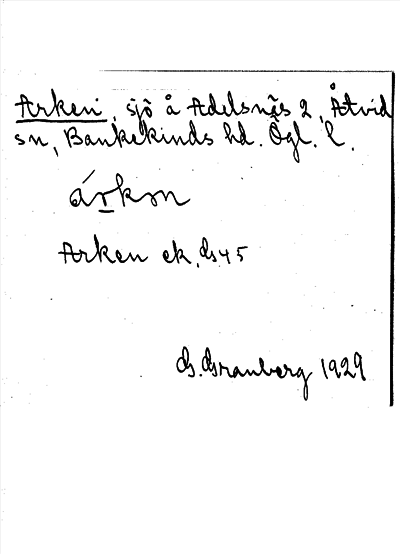 Arken, sjö å Adelsnäs 2, Åtvid
sn, Bankekinds hd. Ögl. l.
árkɔn
Arken ek. G45
G. Granberg 1929